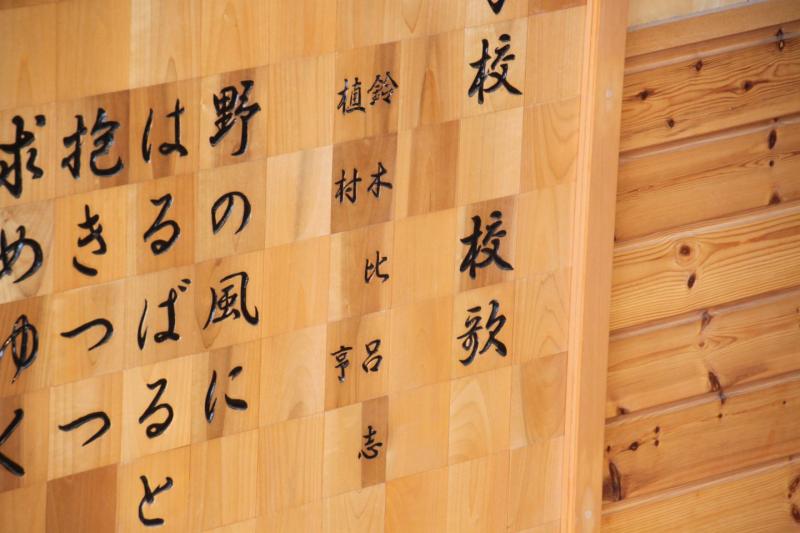 校 校歌
鈴木比呂志
植村 亨
野の風に
はるばると
抱きつつ
求めゆく